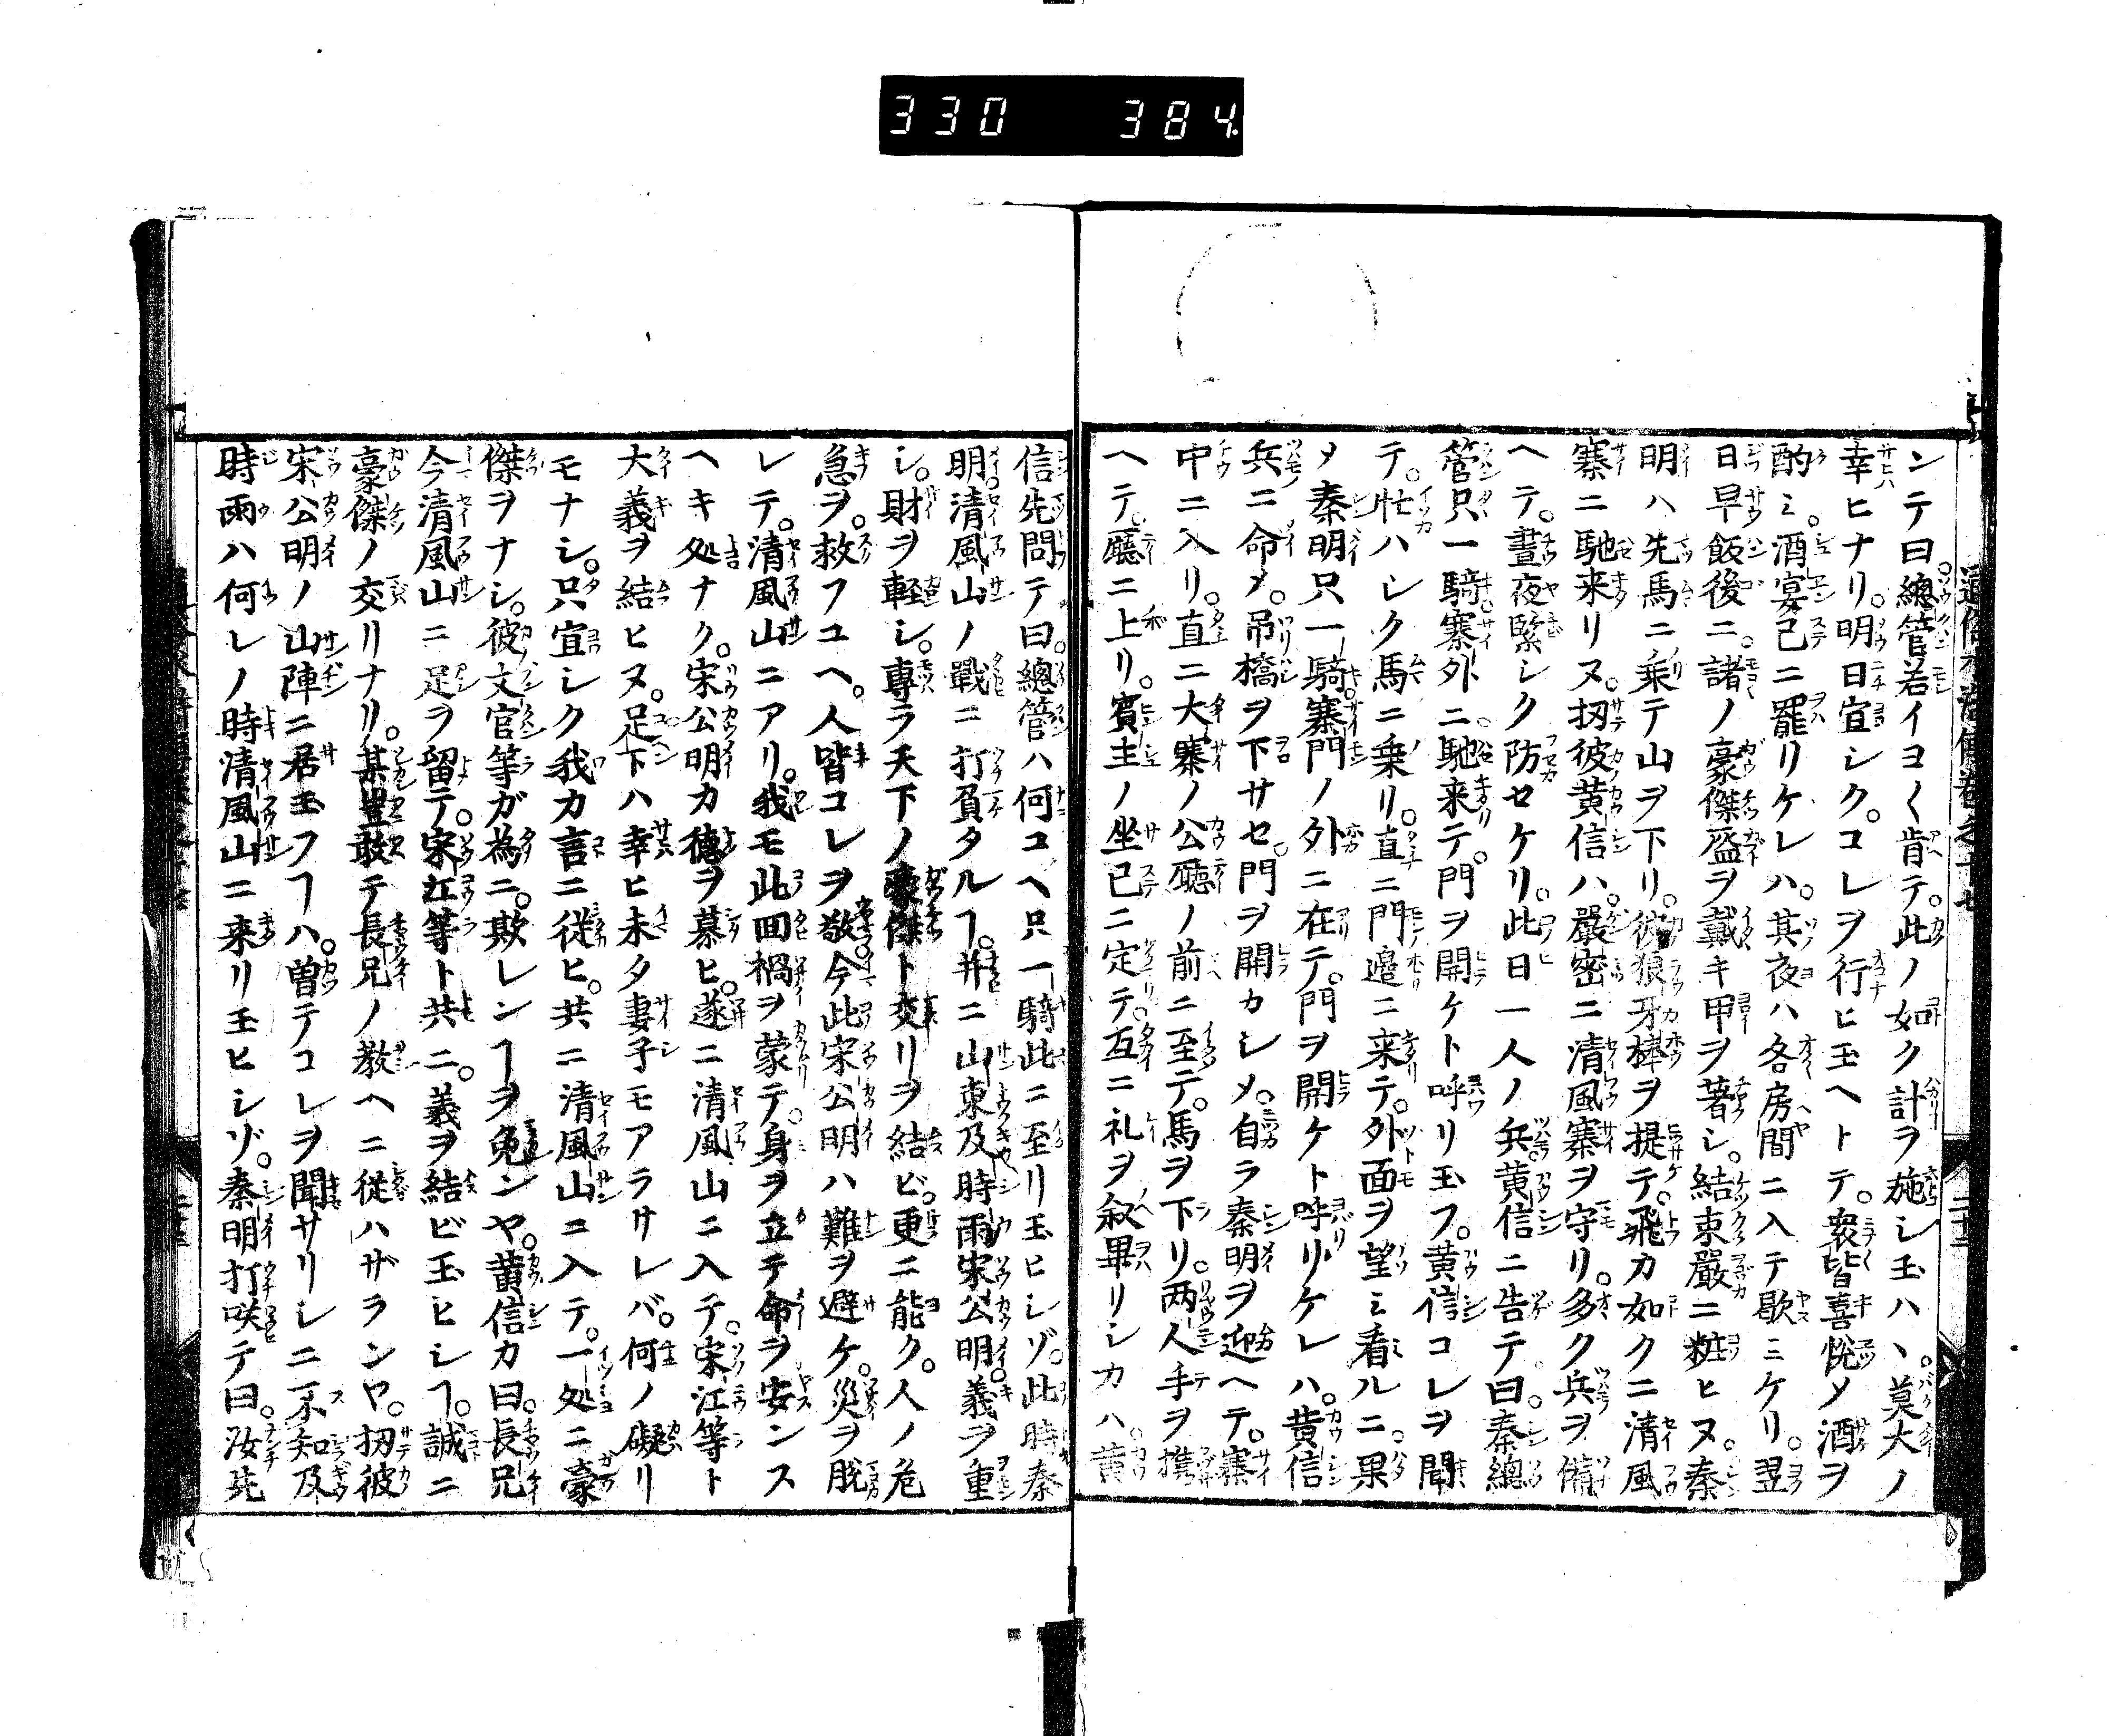 330 384.
ンテ曰。總管若イヨ〱肯テ。此ノ如ク計ヲ施シ玉ハヽ。莫大ノ
幸ヒナリ。明日宜シク。コレヲ行ヒ玉ヘトテ。衆皆喜悦メ酒ヲ
酌ミ。酒宴已ニ罷リケレハ。其夜ハ各房間ニ入テ歇ミケリ。翌
日早飯後ニ。諸ノ豪傑盔ヲ戴キ甲ヲ著シ。結束嚴ニ粧ヒヌ。秦
明ハ先馬ニ乗テ山ヲ下リ。彼狼牙棒ヲ提テ。飛カ如クニ清風
寨ニ馳来リヌ。扨彼黄信ハ。嚴密ニ清風寨ヲ守リ。多ク兵ヲ備
ヘテ。晝夜緊シク防セケリ。此日一人ノ兵黄信ニ告テ曰。秦總
管只一騎寨外ニ馳来テ。門ヲ開ケト呼リ玉フ。黄信コレヲ聞
テ。忙ハシク馬ニ乗リ。直ニ門邉ニ来テ。外面ヲ望ミ看ルニ。果
メ秦明只一騎寨門ノ外ニ在テ。門ヲ開ケト呼リケレハ。黄信
兵ニ命メ。吊橋ヲ下サセ。門ヲ開カシメ。自ラ秦明ヲ迎ヘテ。寨
中ニ入リ。直ニ大寨ノ公廳ノ前ニ至テ。馬ヲ下リ。両人手ヲ携
ヘテ。廳ニ上リ。賓主ノ坐已ニ定テ。互ニ礼ヲ叙畢リシカハ。黄
信先問テ曰。總管ハ何ユヘ只一騎此ニ至リ玉ヒシゾ。此時秦
明。清風山ノ戰ニ打負タルヿ。并ニ山東及時雨宋公明。義ヲ重
シ。財ヲ軽シ。專ラ天下ノ豪傑ト交リヲ結ビ。更ニ能ク。人ノ危
急ヲ。救フユヘ。人皆コレヲ敬。今此宋公明ハ難ヲ避ケ。災ヲ脱
レテ。清風山ニアリ。我モ此回禍ヲ蒙テ。身ヲ立テ命ヲ安ンス
ヘキ処ナク。宋公明カ德ヲ慕ヒ。遂ニ清風山ニ入テ。宋江等ト
大義ヲ結ヒヌ。足下ハ幸ヒ未タ妻子モアラサレバ。何ノ礙リ
モナシ。只宜シク我カ言ニ従ヒ。共ニ清風山ニ入テ。一処ニ豪
傑ヲナシ。彼文官等ガ為ニ。欺レンヿヲ免ンヤ。黄信カ曰。長兄
今清風山ニ足ヲ留テ。宋江等ト共ニ。義ヲ結ビ玉ヒシヿ。誠ニ
豪傑ノ交リナリ。某豈敢テ長兄ノ教ヘニ従ハザランヤ。扨彼
宋公明ノ山陣ニ居玉フヿハ。曽テコレヲ聞サリシニ不知及
時雨ハ何レノ時清風山ニ来リ玉ヒシゾ。秦明打咲テ曰。汝先